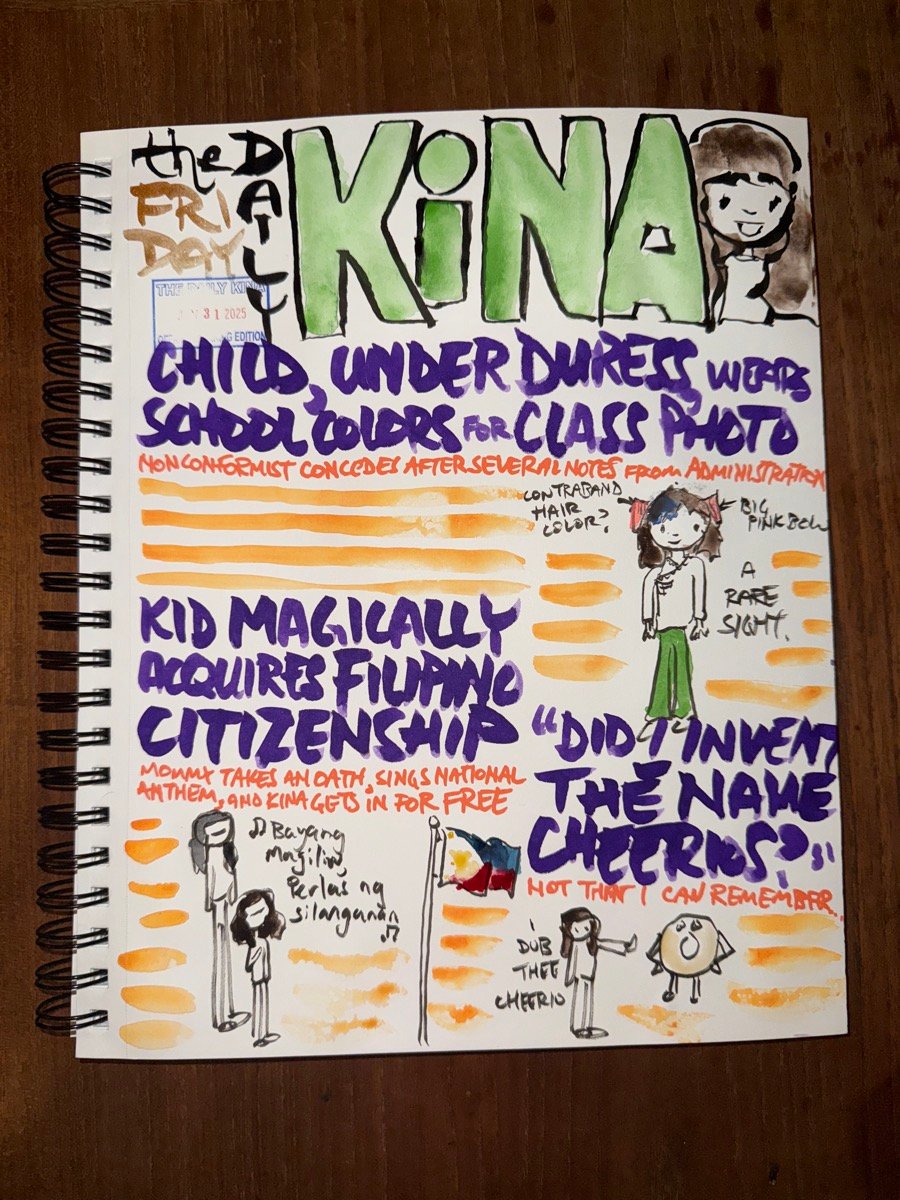 the DAILY
KiNA
FRI
DAY
THE DAILY KINA
31 2025
EDITION
CHILD, UNDER DURESS, WEARS
SCHOOL COLORS FOR CLASS PHOTO
NONCONFORMIST CONCEDES AFTER SEVERAL NOTES FROM ADMINISTRATION
CONTRABAND
HAIR
COLOR?
BIG
PINK BOW
A
RARE
SIGHT.
KID MAGICALLY
ACQUIRES FILIPINO
CITIZENSHIP
MOMMY TAKES AN OATH, SINGS NATIONAL
ANTHEM, AND KINA GETS IN FOR FREE
♫ Bayang
Magiliw
Perlas ng
silanganan
♫
"DID I INVENT
THE NAME
CHEERIOS?"
NOT THAT I CAN REMEMBER..
I
DUB
THEE
CHEERIO